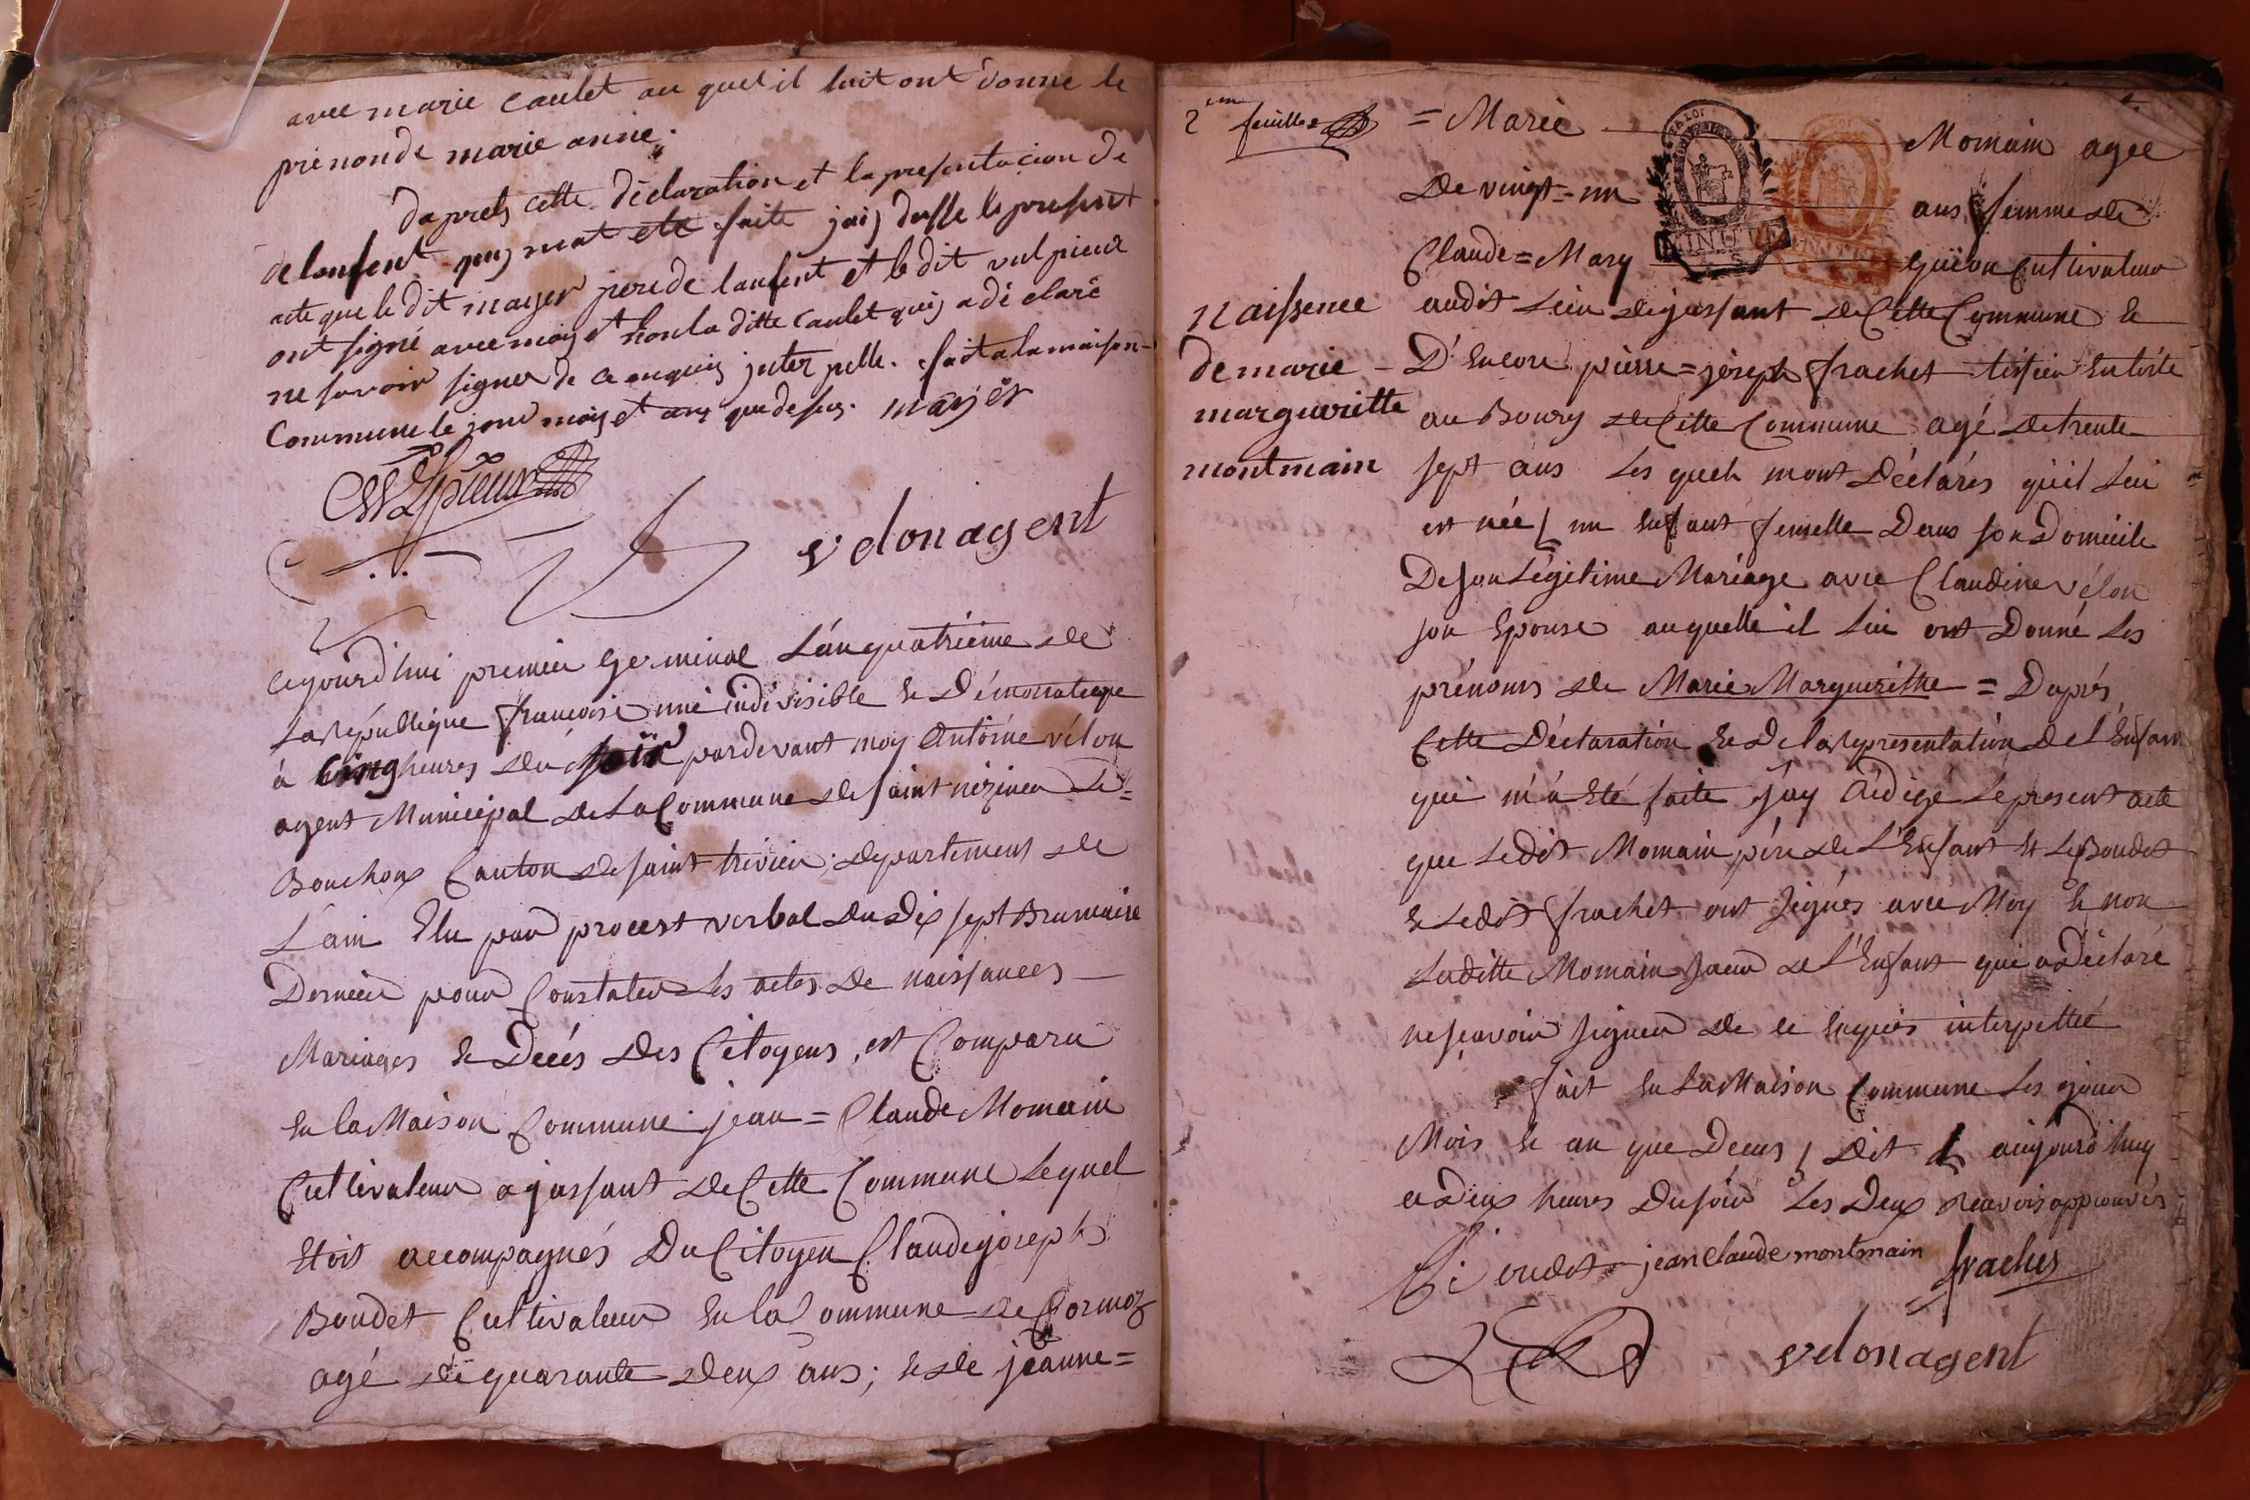 avec marie caulet au quel il luit ont donne le
prenon de marie anne.
daprets cette déclaration et la presentacion de
de lanfent quy mat eté faite jaij dresse le present
acte que le dit mayer perede lanfent et le dit vulpieux
ont signé avec moij et non la ditte caulet quij a dé claré
ne savoir signer de ce enquis jnter pelle. fait a la maison
commune le jour mois et any que desus. mayèr
Vulpieux
velon agent
cejourd'hui premier Germinal L'an quatriéme de
La République francaise une indivisible et Démocratique
à cinq heures du soir pardevant moy Antoine vélon
agent Municipal de La Commune de saint nizier Le=
Bouchoux Canton de saint trivier, departement de
L'ain Elu par procest verbal du dix sept Brumaire
Dernier pour Constater Les actes de naissances
Mariages et Decés des Citoyens, est Comparu
En la Maison Commune jean=Claude Momain
Cultivateur a jassant de Cette Commune Lequel
Etoit accompagnés Du Citoyen Claude joseph
Boudet Cultivateur En la Commune de Cormoz
agé de quarante deux ans; et de jeanne=
2 eme feuille
=Marie Momain agee
De vingt=un ans femme de
Claude=Mary Guion Cultivateur
audit Lieu dejassant de Cette Commune et
D'Encore pierre=joseph frachet tissier En toile
au Bourg de Cette Commune agé de trente
sept ans Les quels mont Déclarés qu'il Lui
est née un Enfant femelle Dans son Domicile
De son Légitime Mariage avec Claudine vélon
son Epouse auquelle il Lui ont Donné Les
prénoms de Marie Margueritte = Daprés
Cette Déclaration Et De la Représentation De L'Enfant
qui m'a Eté faite j'ay Rédigé Le present acte
que Ledit Momain pére de L'Enfant Et Le Boudet
et Ledit frachet ont signés avec Moy Et non
Laditte Momain sœur de L'Enfant qui a Déclaré
ne sçavoir signer de ce Enquis interpellée
fait En La Maison Commune Les jour
Mois et an que Decus, dit aujourd'huy
a Deux heures Du soir Les Deux Renvois approuvés
naissence
de marie
margueritte
montmain
C:j: oudet jean claude montmain frachet
velon agent
LA LOI
MINUTE